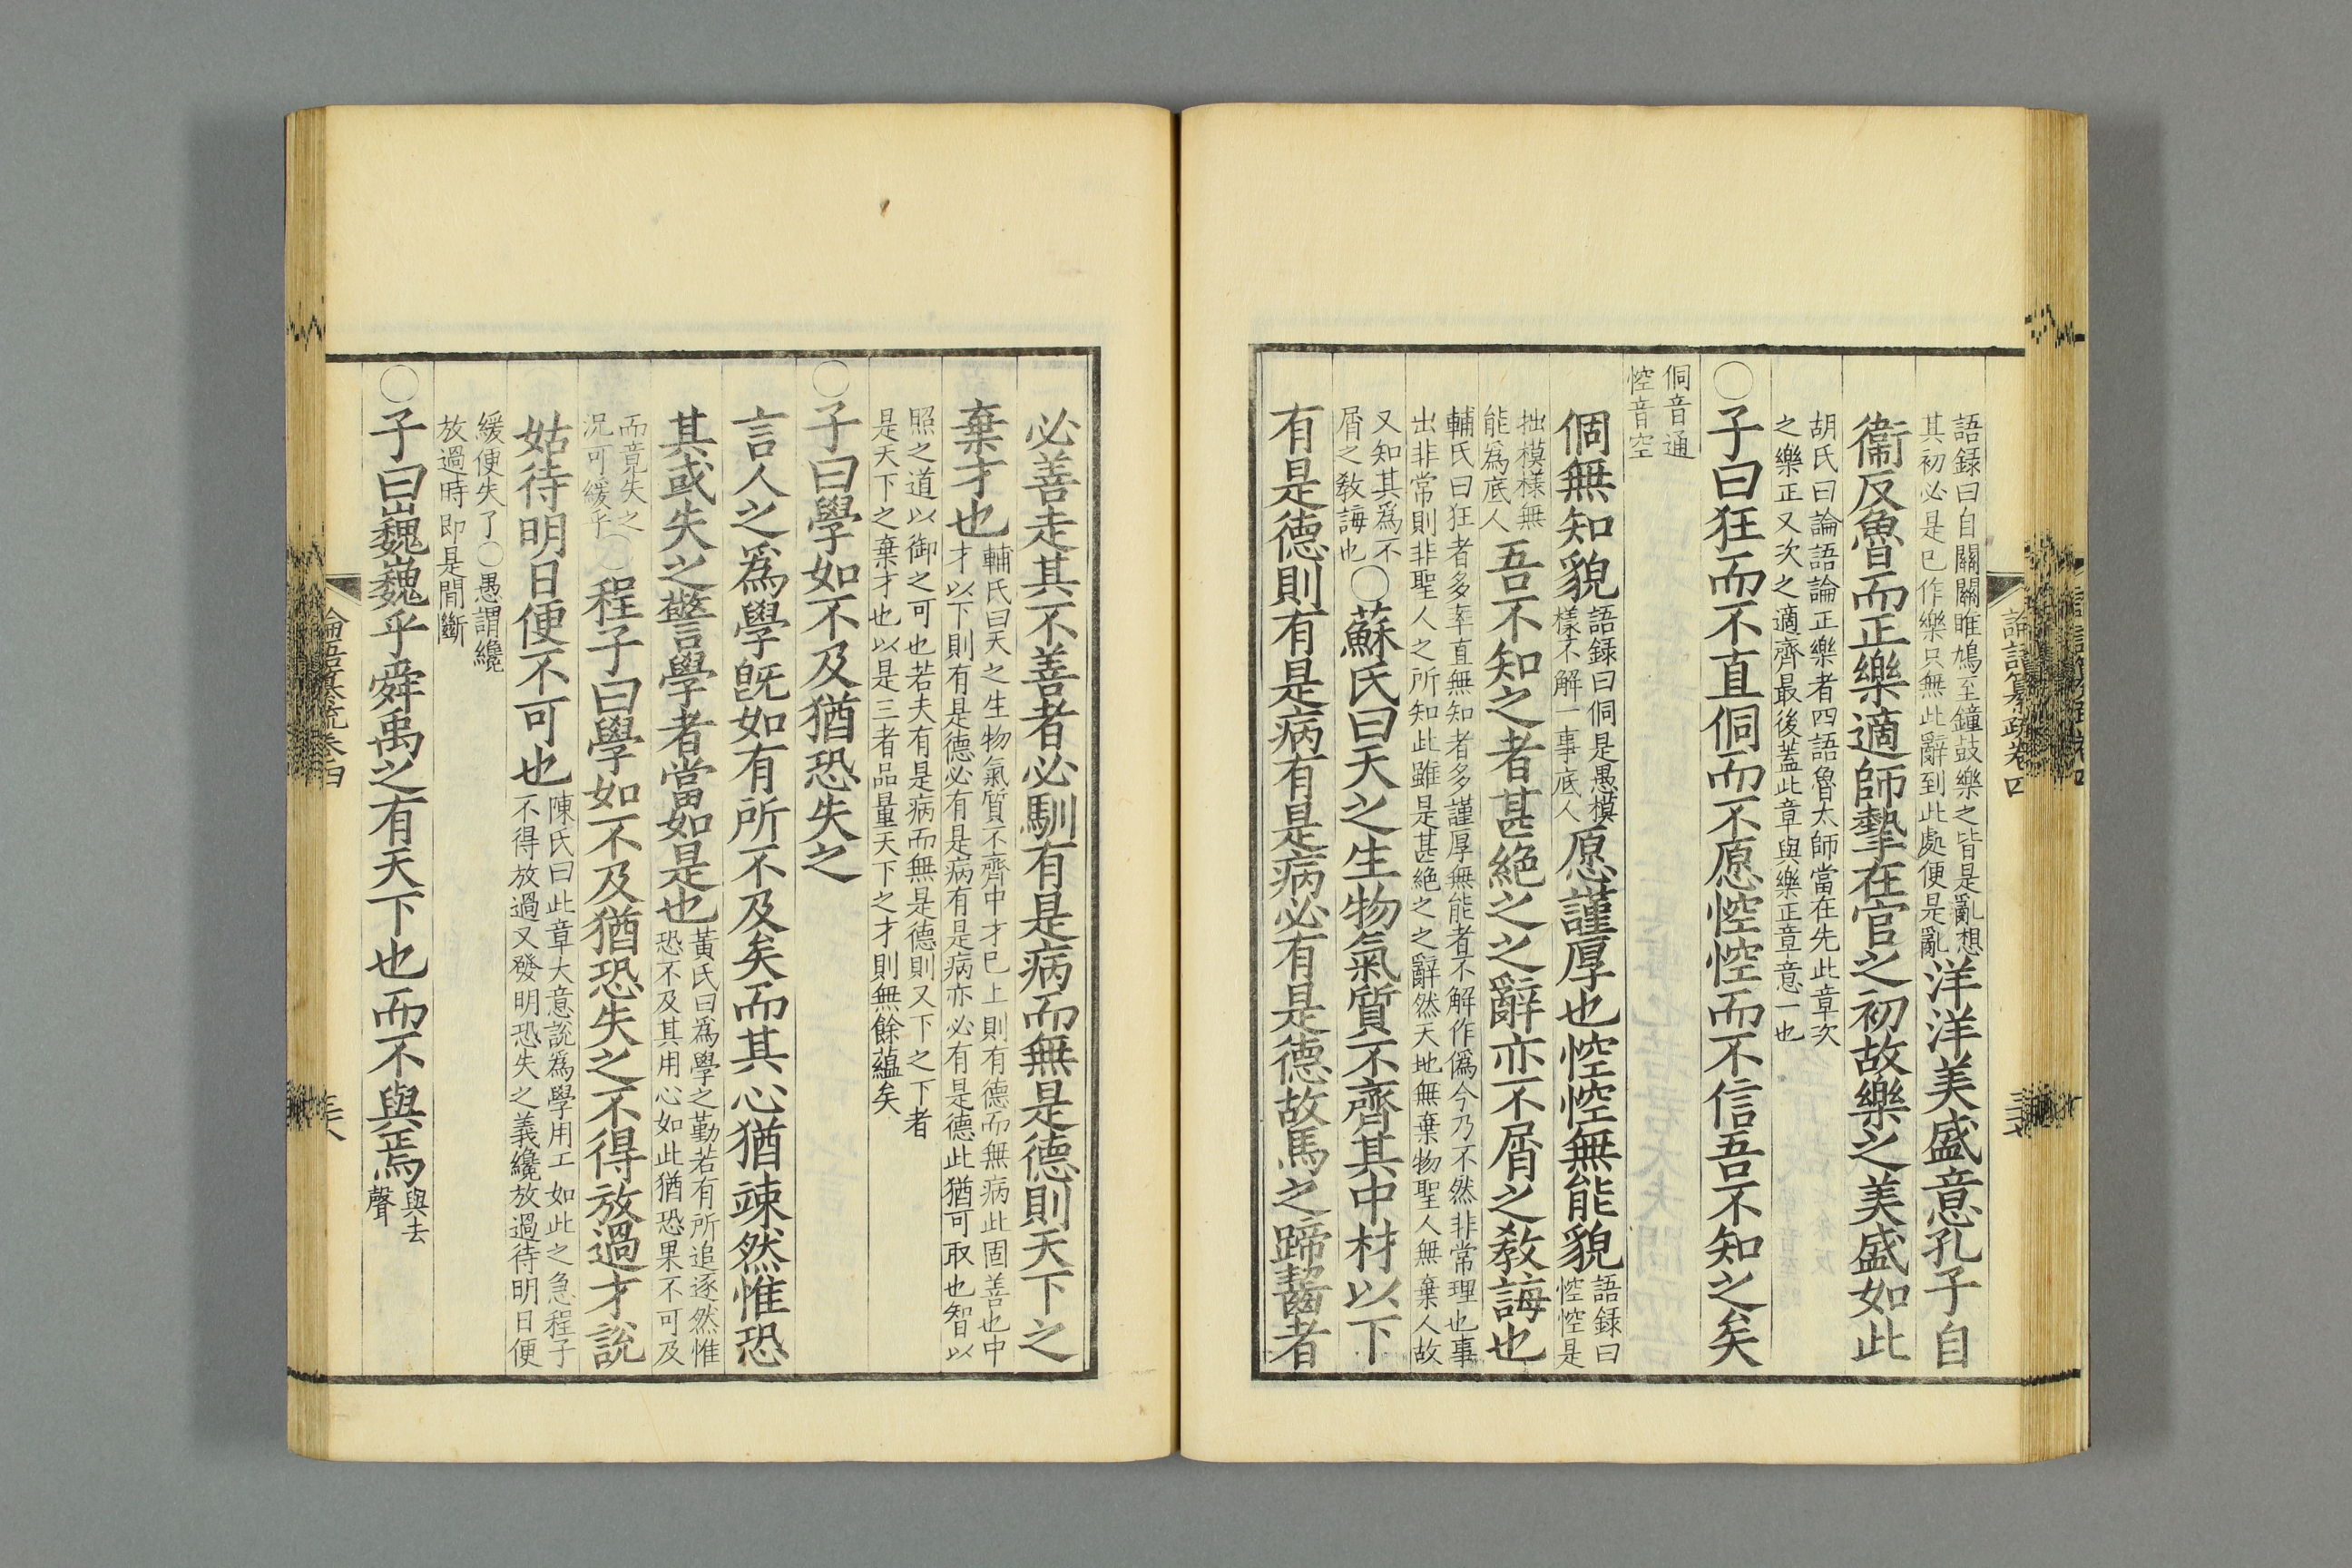 語錄曰自關關雎鳩至鐘鼓樂之皆是亂想
其初必是已作樂只無此辭到此處便是亂
洋洋美盛意孔子自
衞反魯而正樂適師摯在官之初故樂之美盛如此
胡氏曰論語論正樂者四語魯太師當在先此章次
之樂正又次之適齊最後蓋此章與樂正章意一也
○子曰狂而不直侗而不愿悾悾而不信吾不知之矣
侗音通
悾音空
侗無知貌
語錄曰侗是愚模
樣不解一事底人
愿謹厚也悾悾無能貌
語錄曰
悾悾是
拙模樣無
能爲底人
吾不知之者甚絶之之辭亦不屑之教誨也
輔氏曰狂者多率直無知者多謹厚無能者不解作僞今乃不然非常理也事
出非常則非聖人之所知此雖是甚絶之之辭然天地無棄物聖人無棄人故
又知其爲不
屑之教誨也
○蘇氏曰天之生物氣質不齊其中材以下
有是德則有是病有是病必有是德故馬之蹄齧者
論語纂疏卷四
必善走其不善者必馴有是病而無是德則天下之
棄才也
輔氏曰天之生物氣質不齊中才已上則有德而無病此固善也中
才以下則有是德必有是病有是病亦必有是德此猶可取也智以
照之道以御之可也若夫有是病而無是德則又下之下者
是天下之棄才也以是三者品量天下之才則無餘蘊矣
○子曰學如不及猶恐失之
言人之爲學旣如有所不及矣而其心猶竦然惟恐
其或失之警學者當如是也
黃氏曰爲學之勤若有所追逐然惟
恐不及其用心如此猶恐果不可及
而竟失之
況可緩乎
○程子曰學如不及猶恐失之不得放過才說
姑待明日便不可也
陳氏曰此章大意說爲學用工如此之急程子
不得放過又發明恐失之義纔放過待明日便
緩便失了○愚謂纔
放過時即是間斷
○子曰巍巍乎舜禹之有天下也而不與焉
與去
聲